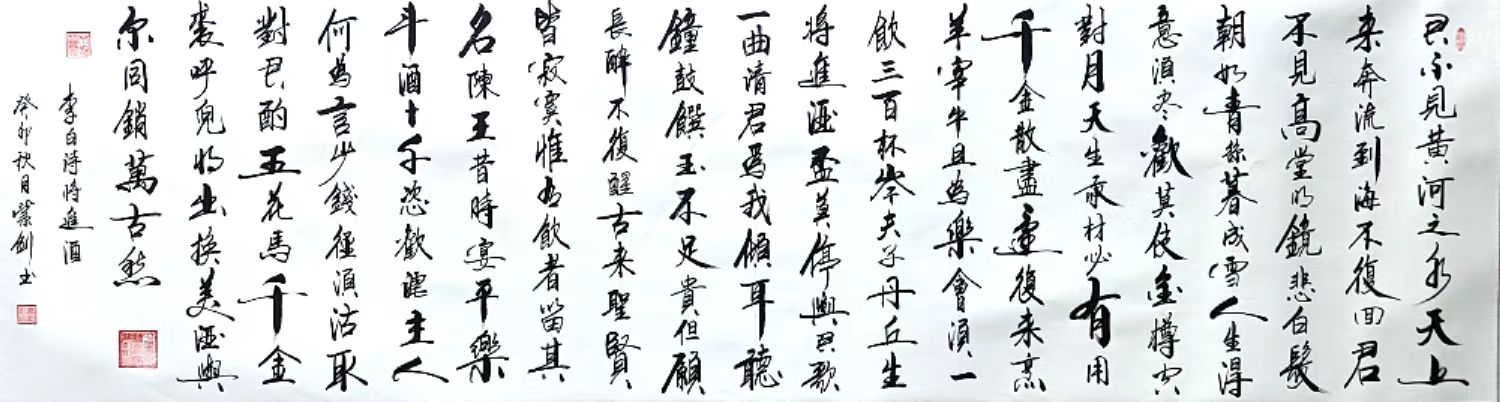 君不見黃河之水天上
来奔流到海不復回君
不見高堂明鏡悲白髮
朝如青絲暮成雪人生得
意須尽歡莫使金樽空
對月天生我材必有用
千金散盡還復来烹
羊宰牛且為樂會須一
飲三百杯岑夫子丹丘生
將進酒盃莫停與君歌
一曲清君為我傾耳聽
鐘鼓饌玉不足貴但願
長醉不復醒古来聖賢
皆寂寞惟有飲者留其
名陳王昔時宴平樂
斗酒十千恣歡謔主人
何為言少錢徑須沽取
對君酌五花馬千金
裘呼兒將出換美酒與
尔同銷萬古愁
李白詩將進酒
癸卯秋月紫劍书